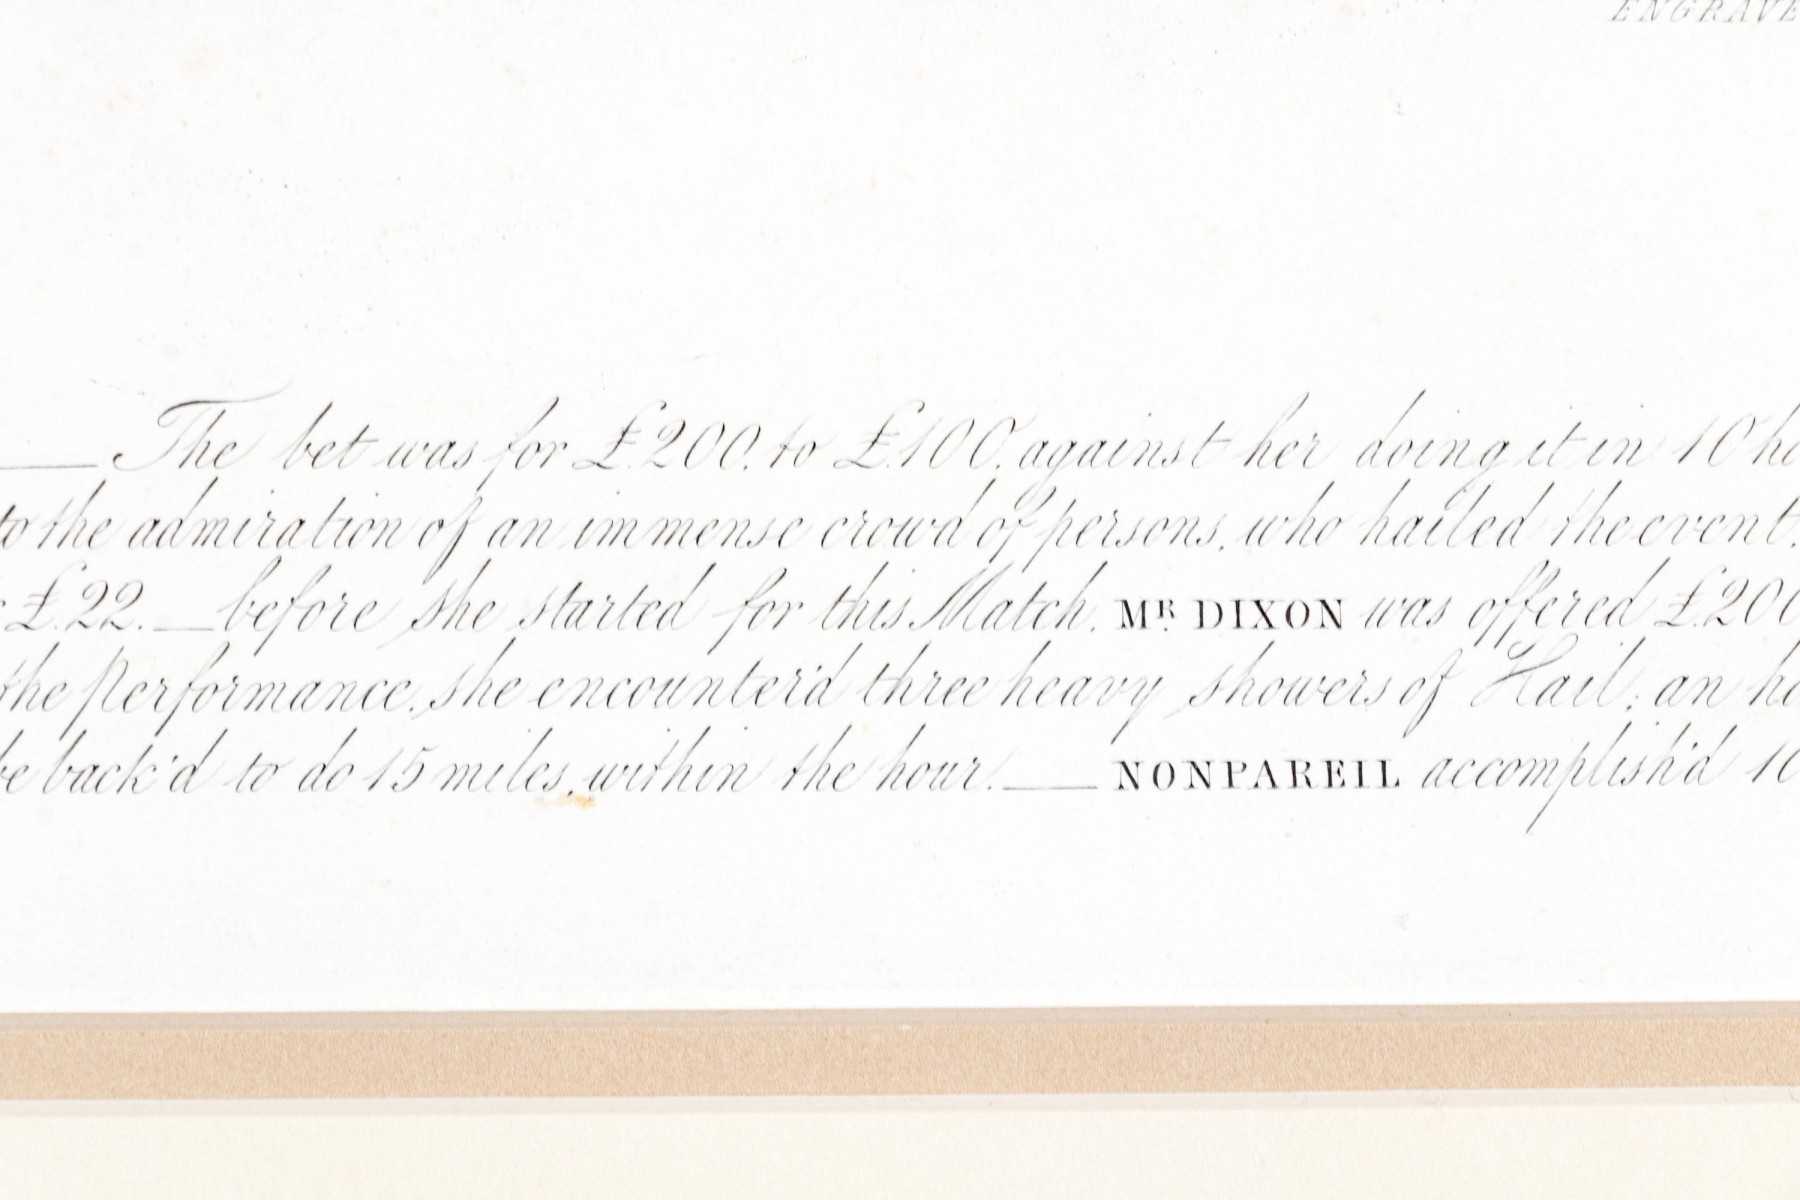 ENGRAVE
The bet was for £200. to £100, against her doing it in 10 ho
to the admiration of an immense crowd of persons, who hailed the event,
£.22. — before she started for this Match, MR. DIXON was offered £200
the Performance, she encounter'd three heavy showers of Hail; an ho
be back'd to do 15 miles, within the hour. — NONPAREIL accomplish'd 10